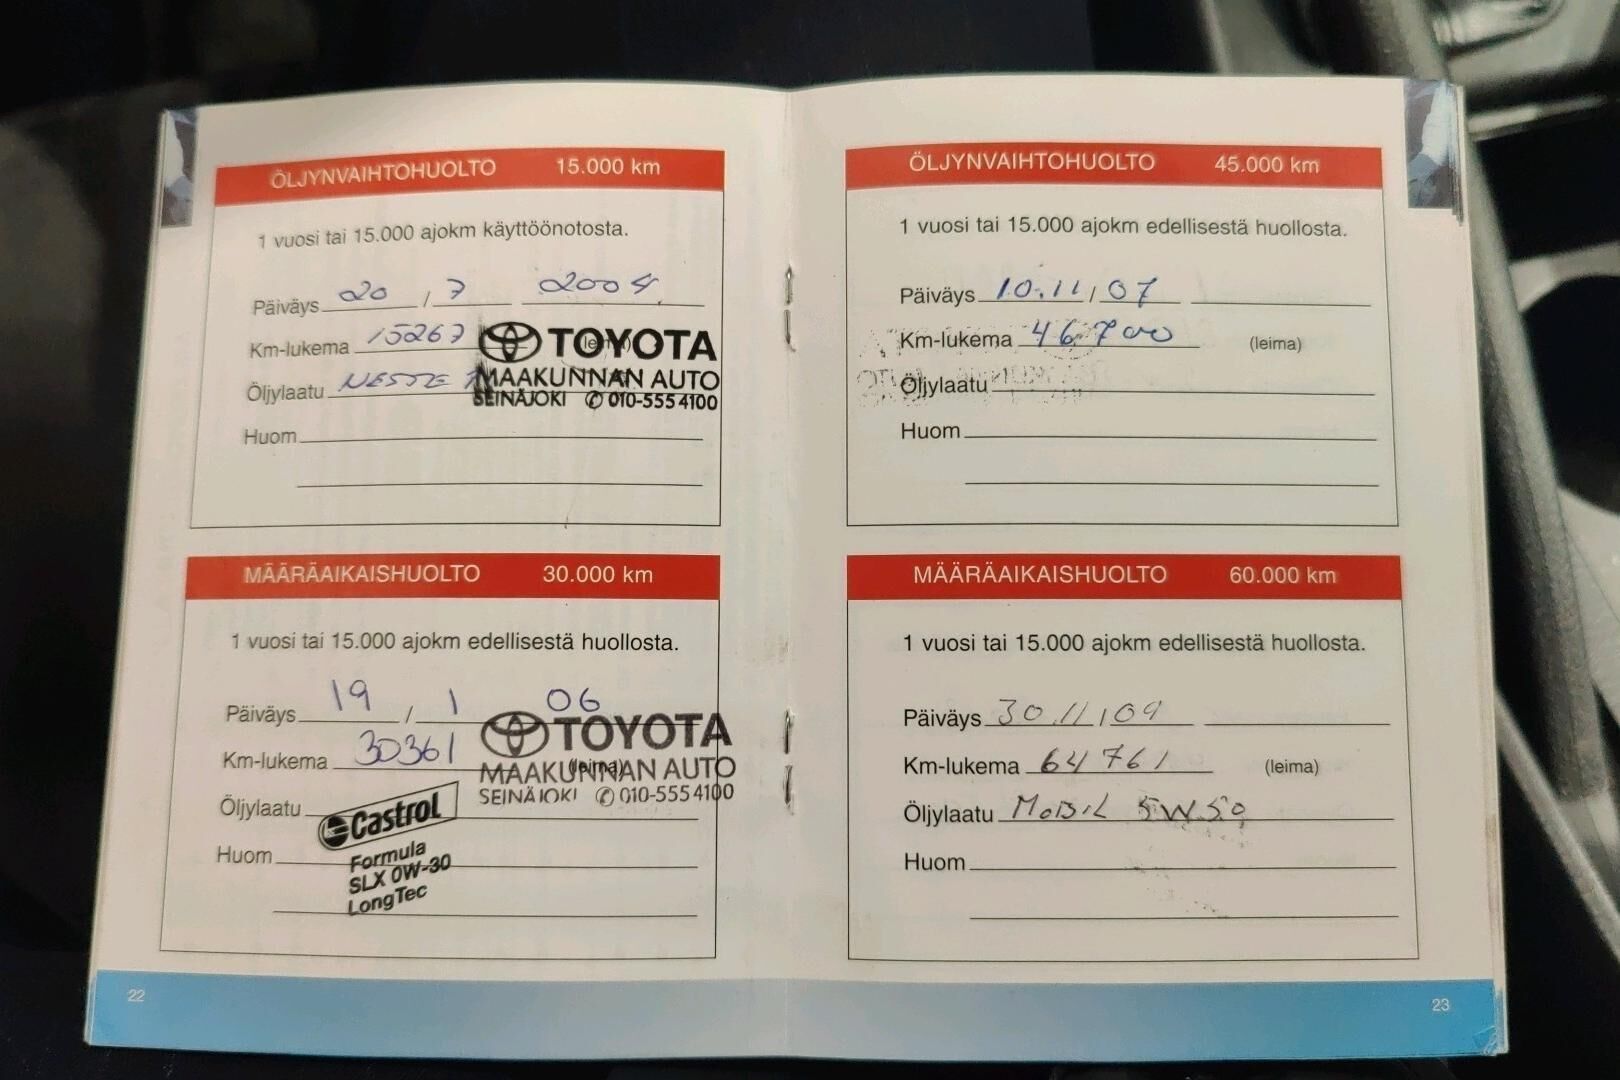 ÖLJYNVAIHTOHUOLTO 15.000 km
1 vuosi tai 15.000 ajokm käyttöönotosta.
Päiväys 20 / 7 2004
Km-lukema 15267 (leima)
TOYOTA
Öljylaatu NESTE
MAAKUNNAN AUTO
SEINÄJOKI ✆ 010-555 4100
Huom
MÄÄRÄAIKAISHUOLTO 30.000 km
1 vuosi tai 15.000 ajokm edellisestä huollosta.
Päiväys 19 / 1 06
TOYOTA
Km-lukema 30361 (leima)
MAAKUNNAN AUTO
SEINÄJOKI ✆ 010-555 4100
Öljylaatu Castrol
Huom Formula
SLX 0W-30
LongTec
22
ÖLJYNVAIHTOHUOLTO 45.000 km
1 vuosi tai 15.000 ajokm edellisestä huollosta.
Päiväys 10.11 / 07
Km-lukema 46700 (leima)
Öljylaatu
Huom
MÄÄRÄAIKAISHUOLTO 60.000 km
1 vuosi tai 15.000 ajokm edellisestä huollosta.
Päiväys 30.11 / 09
Km-lukema 64761 (leima)
Öljylaatu MOBIL 5W50
Huom
23